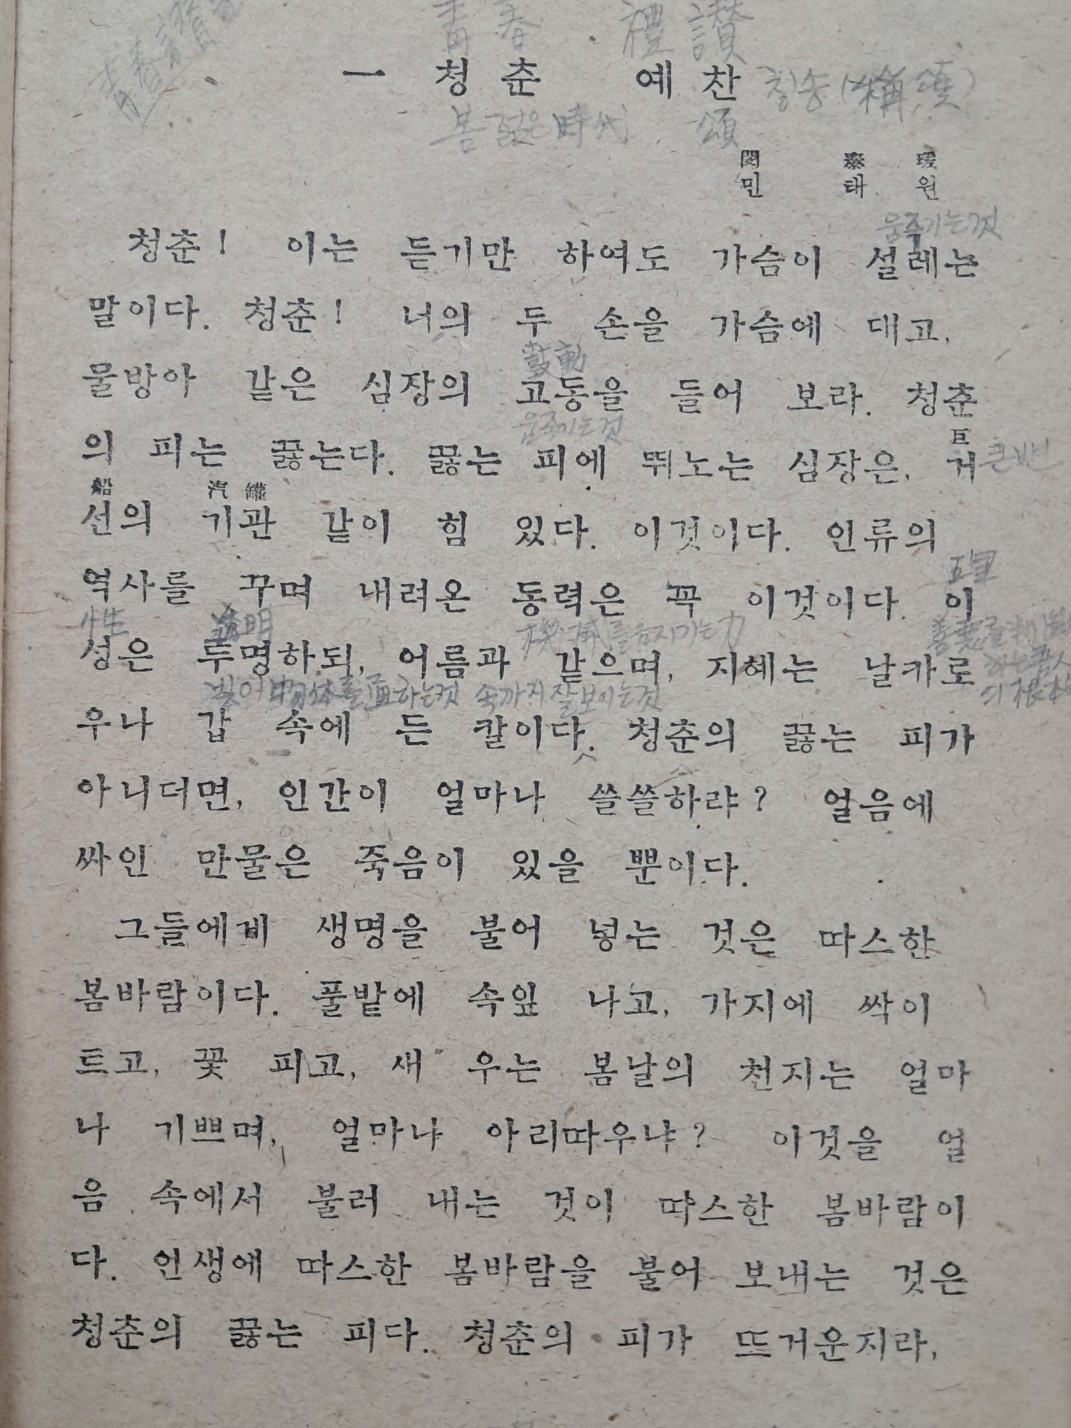 靑春 禮讚
一 청춘 예찬
칭송(稱頌)
봄 젊은 時代 頌
閔 泰 瑗
민 태 원
움즉기는것
청춘! 이는 듣기만 하여도 가슴이 설레는
말이다. 청춘! 너의 두 손을 가슴에 대고,
鼓動
물방아 같은 심장의 고동을 들어 보라. 청춘
움즉이는것
巨
의 피는 끓는다. 끓는 피에 뛰노는 심장은, 거
큰배
船 汽 罐
선의 기관 같이 힘 있다. 이것이다. 인류의
역사를 꾸며 내려온 동력은 꼭 이것이다. 이
性 透明
성은 투명하되, 얼음과 같으며, 지혜는 날카로
속까지 잘 보이는것
우나 갑 속에 든 칼이다. 청춘의 끓는 피가
아니더면, 인간이 얼마나 쓸쓸하랴? 얼음에
싸인 만물은 죽음이 있을 뿐이다.
그들에게 생명을 불어 넣는 것은 따스한
봄바람이다. 풀밭에 속잎 나고, 가지에 싹이
트고, 꽃 피고, 새 우는 봄날의 천지는 얼마
나 기쁘며, 얼마나 아리따우냐? 이것을 얼
음 속에서 불러 내는 것이 따스한 봄바람이
다. 인생에 따스한 봄바람을 불어 보내는 것은
청춘의 끓는 피다. 청춘의 피가 뜨거운지라,